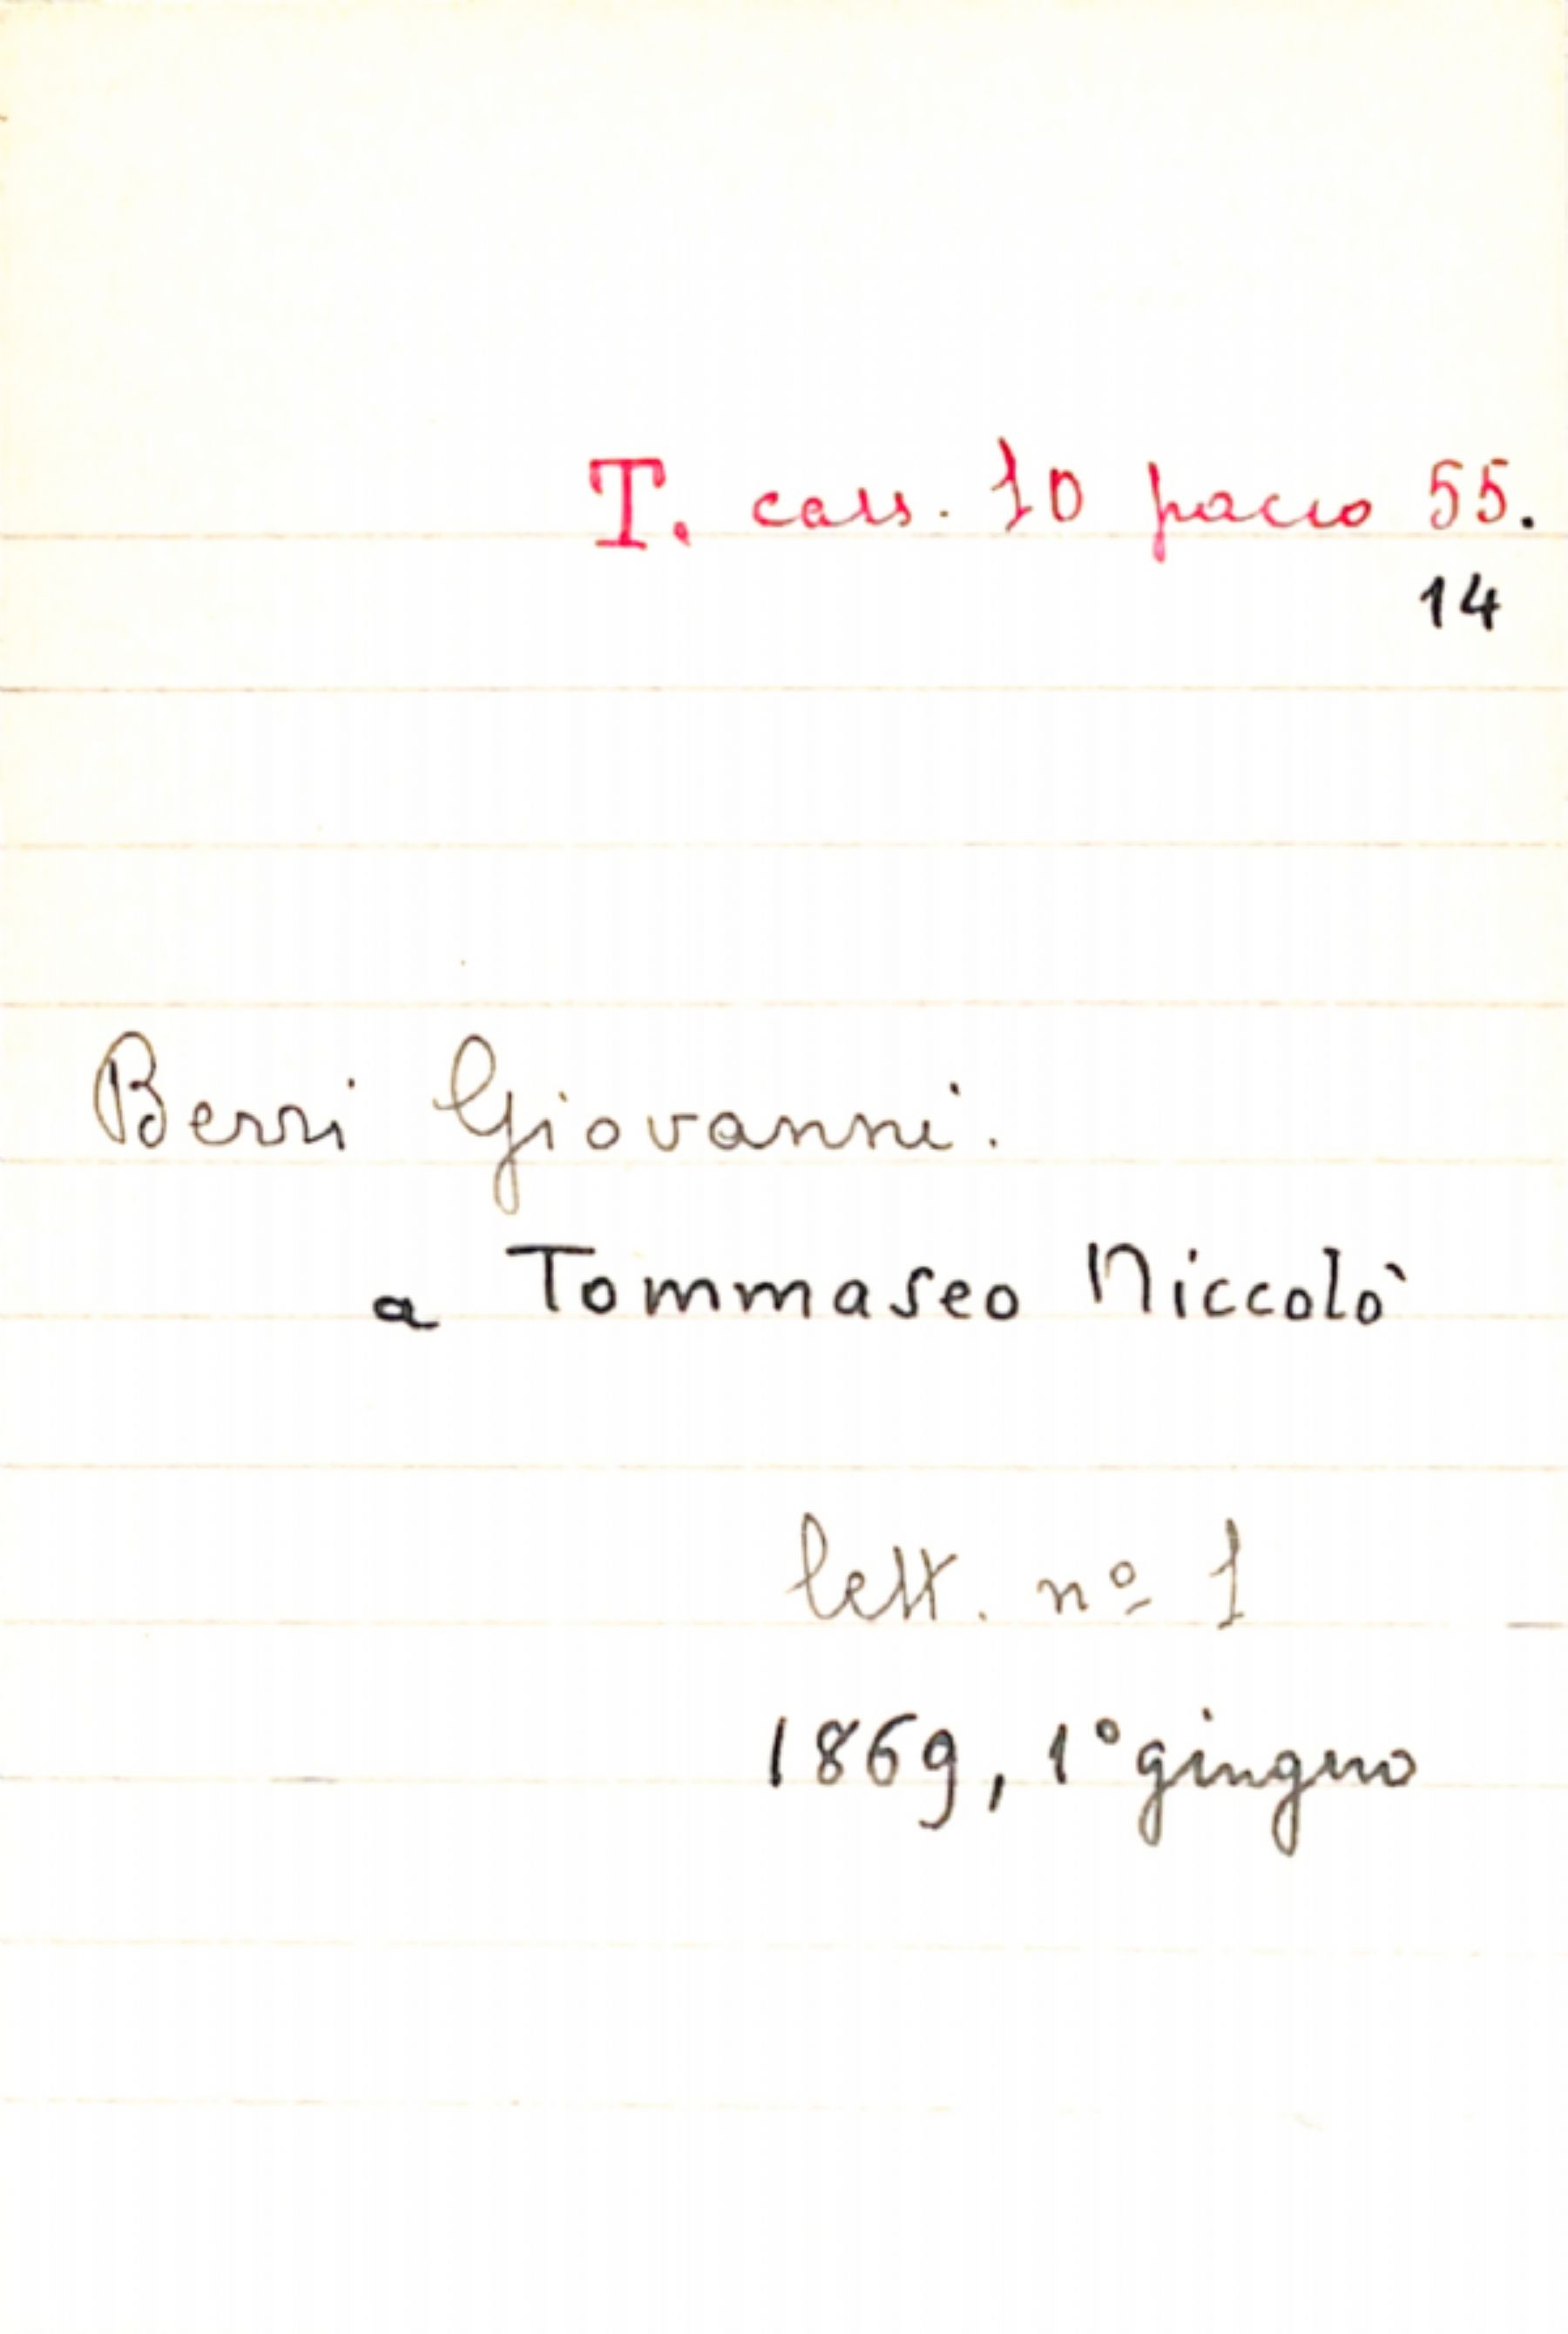 T. cass. 10 pacco 55.
14
Berri Giovanni.
a Tommaseo Niccolò
lett. nº 1
1869, 1° giugno